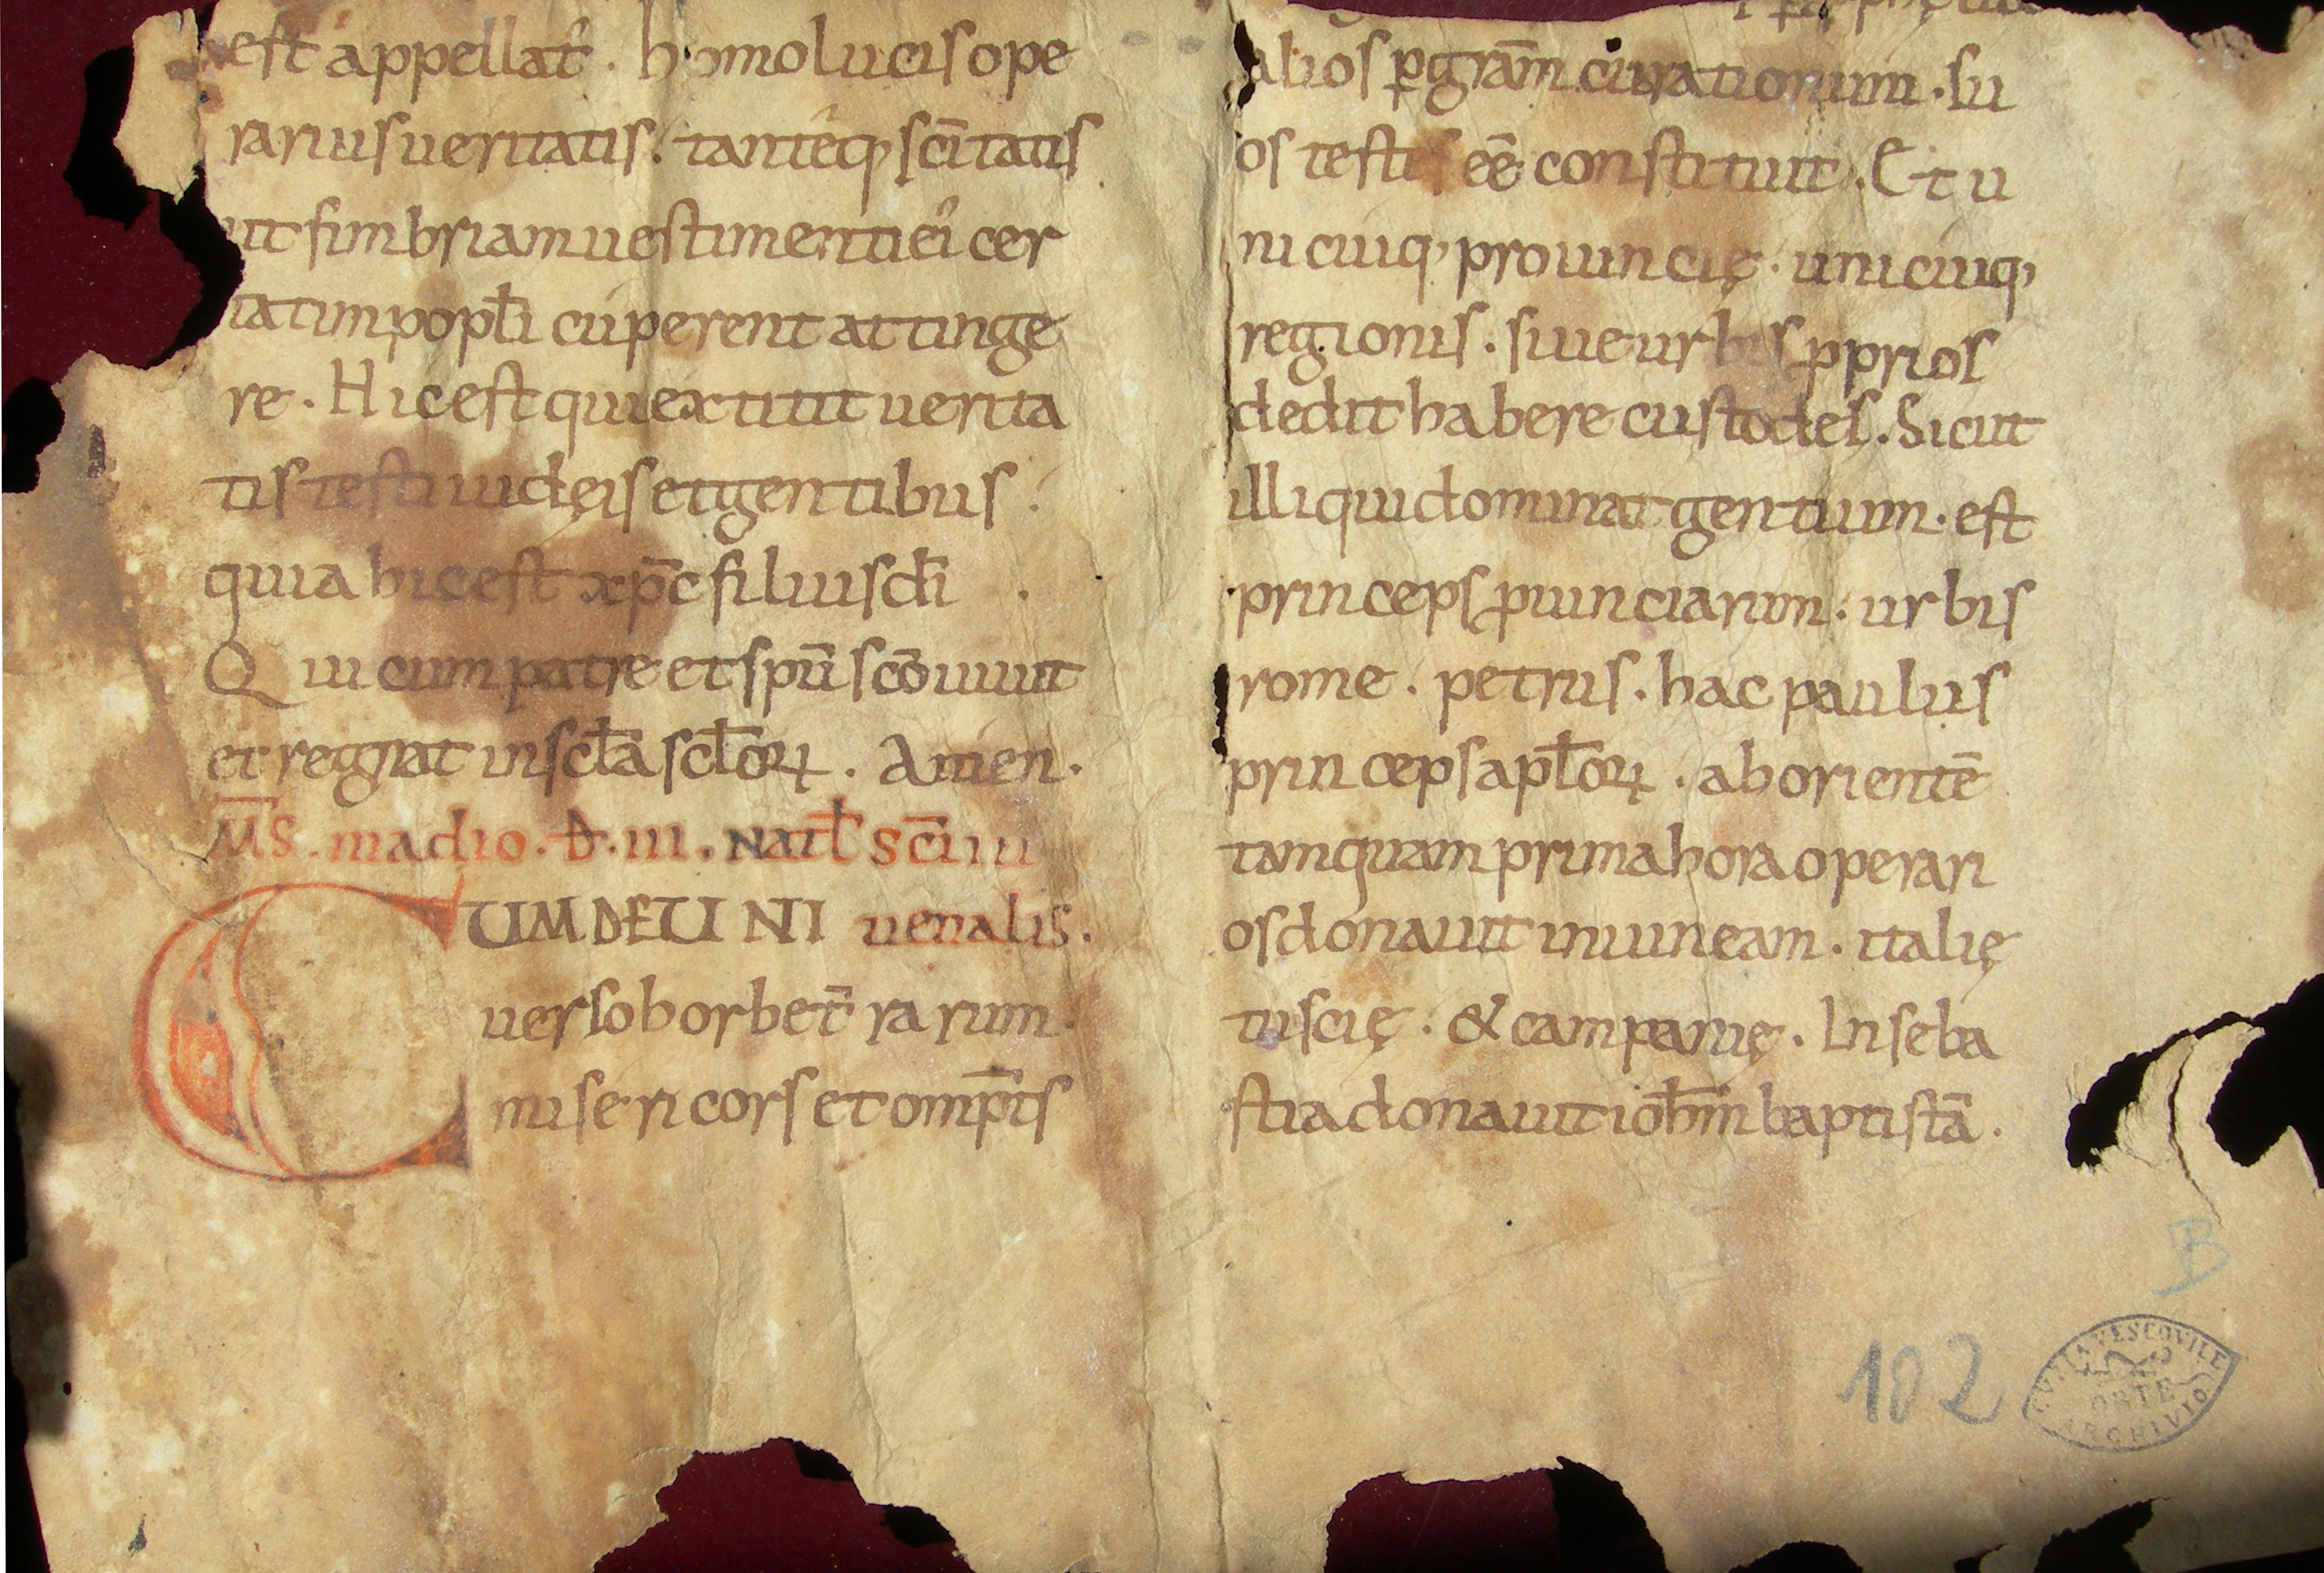 est appellat᷑. homo lucis ope
rarius ueritatis. tanteq; sc̄itatis
ut fimbriam uestimenti ei᷑ cer
tatim popl̄i cuperent attinge
re. Hic est qui extitit uerita
tis testi iudęis et gentibus.
quia hic est xp̄c filius dī
Qui cum patre et spū scō uiuit
et regnat in scl̄a scl̄oꝝ. Amen.
M̄S. madio. D. iii. Natl̄ sc̄i iu
CUM DEUI NI uenalis.
uerso horbet᷑ rarum.
misericors et omp̄s
alios ꝑ gr̄am curationum. su
os testes eē constituit. Et u
nicuiq; prouincię. unicuiq;
regionis. siue urbis ꝓprios
dedit habere custodes. Sicut
illi qui dominat gentium. est
princeps ꝓuinciarum. urbis
rome. petrus. hac paulus
princeps apl̄oꝝ. ab orientē
tamquam prima hora operari
os donauit in uineam. italię
tuscię. & campanię. In seba
stia donauit ioh̄m baptistā.
B
102
CURIA VESCOVILE
ORTE
ARCHIVIO